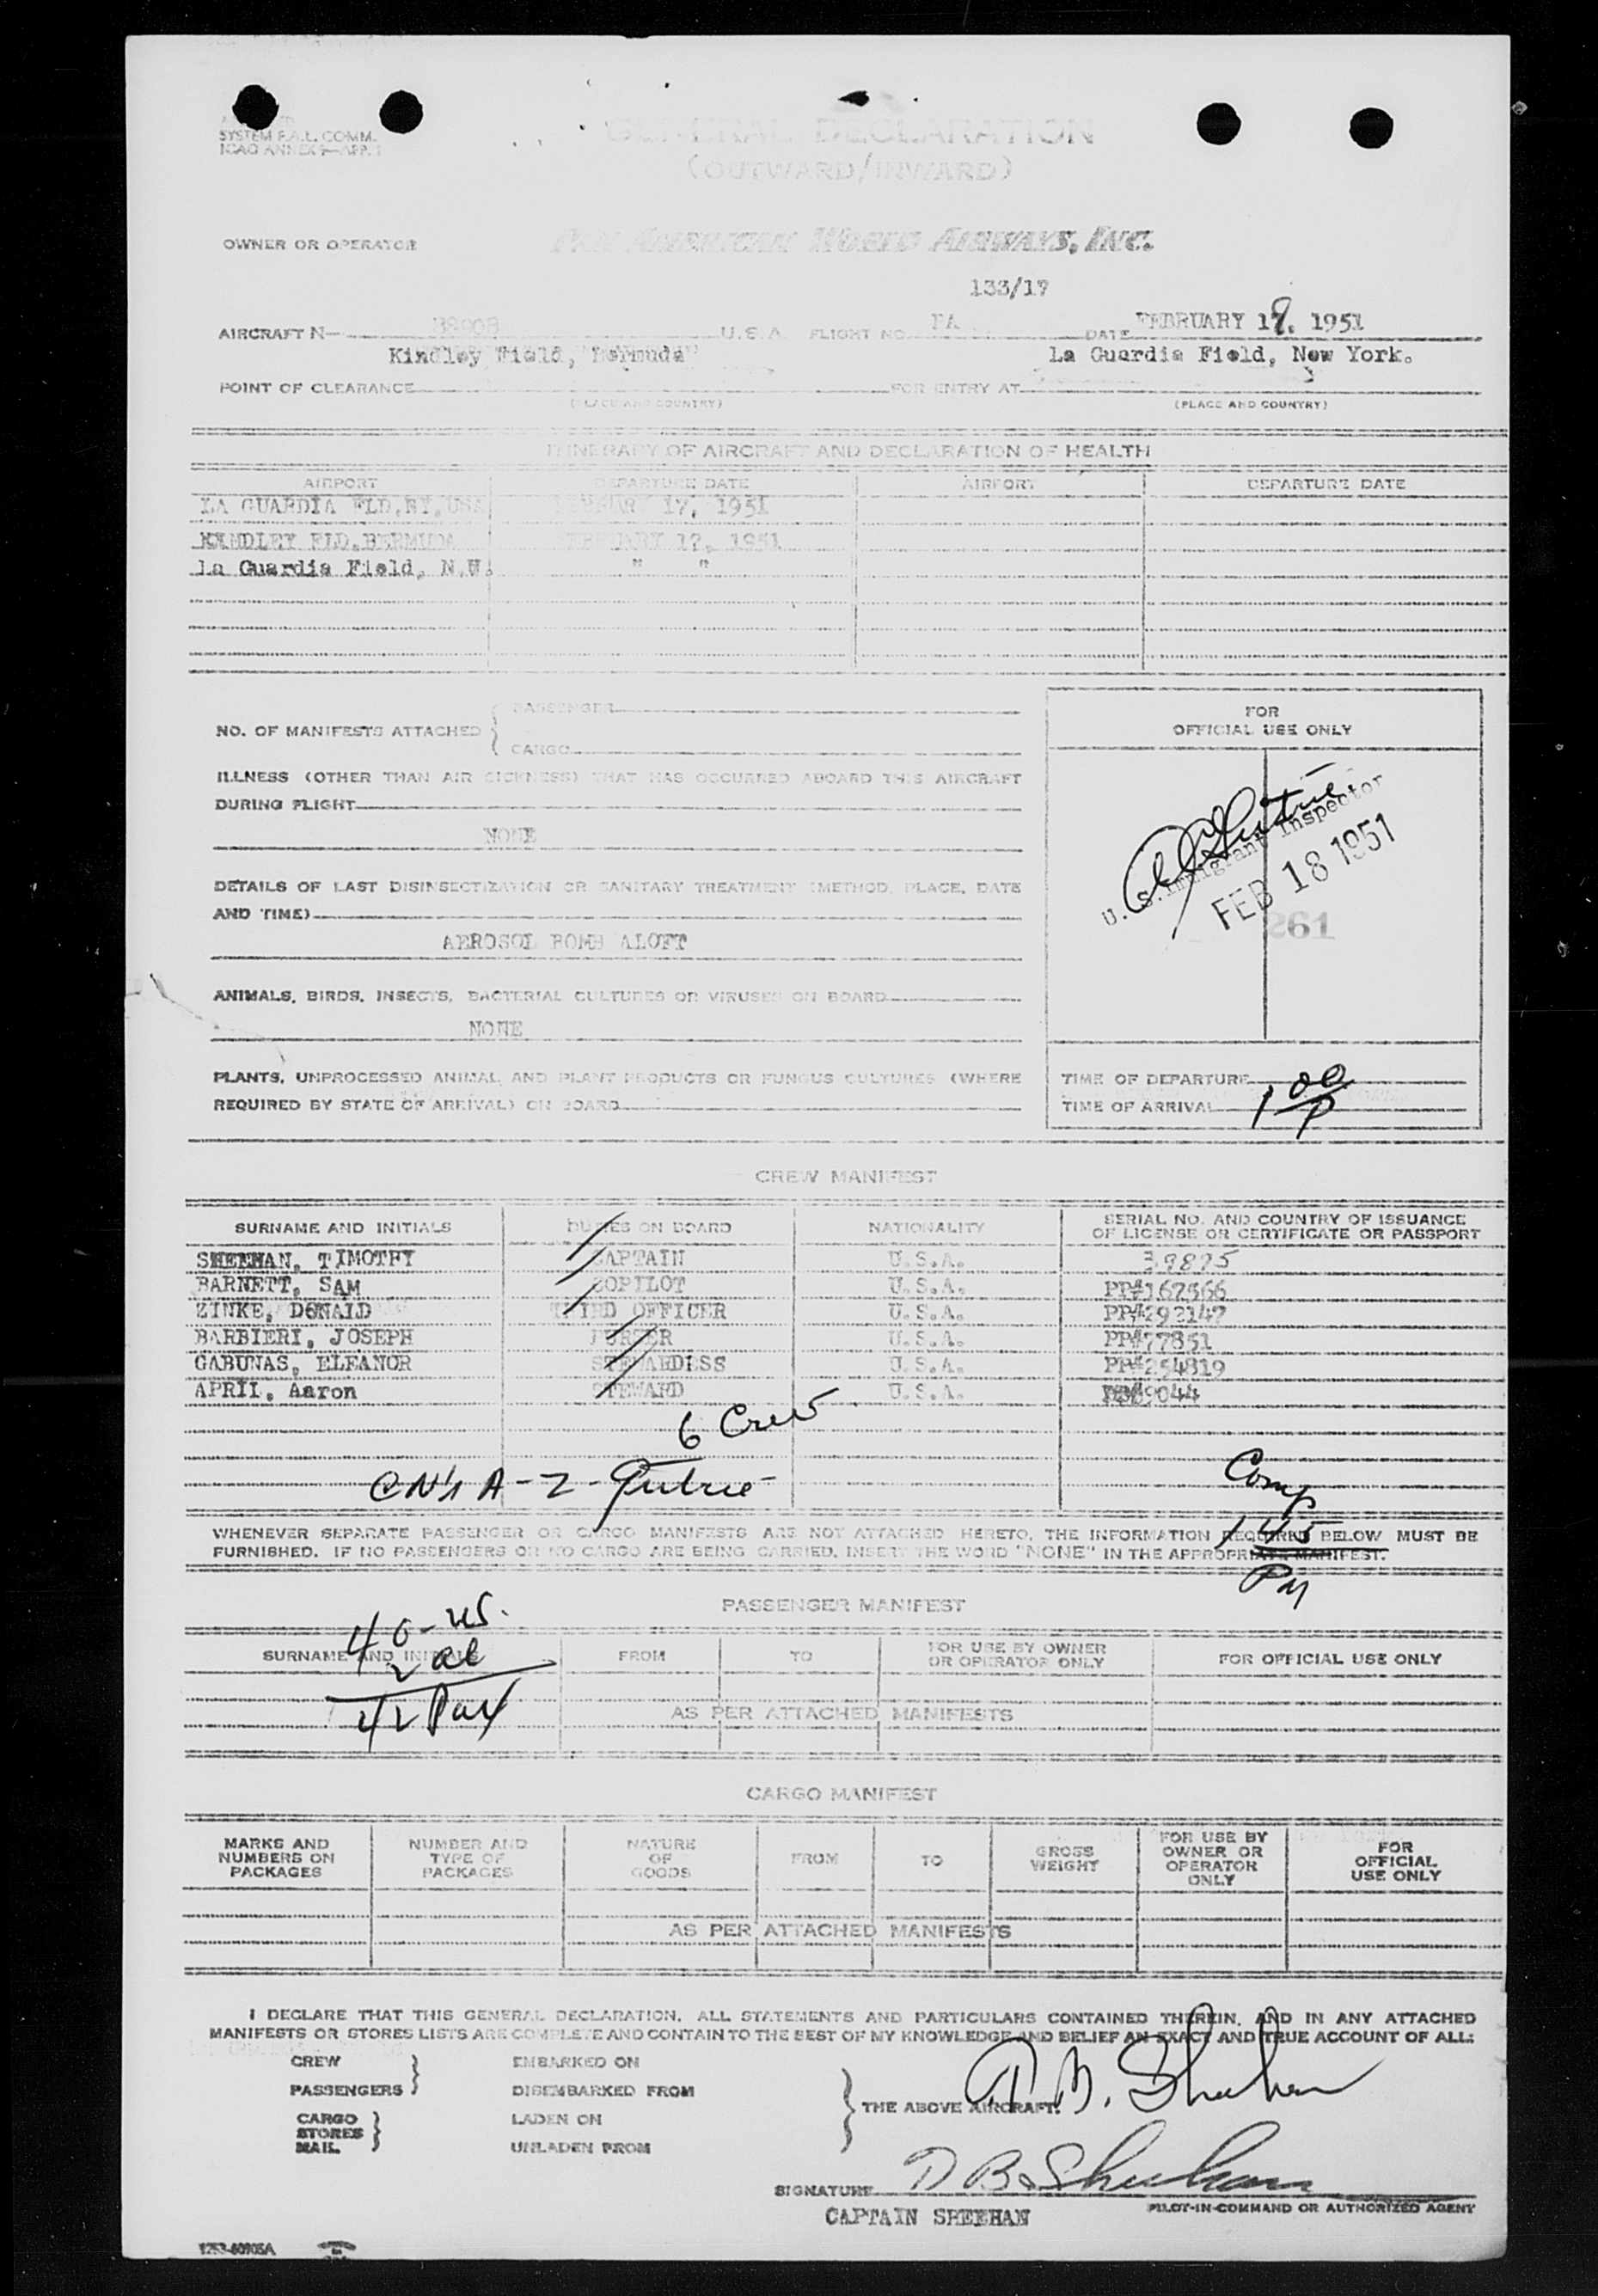 SYSTEM F.A.L. COMM.
ICAO ANNEX 9—APP. 1
GENERAL DECLARATION
(OUTWARD/INWARD)
OWNER OR OPERATOR PAN AMERICAN WORLD AIRWAYS, INC.
133/17
AIRCRAFT N— U.S.A. FLIGHT NO. PA DATE FEBRUARY 18, 1951
Kindley Field, Bermuda La Guardia Field, New York.
POINT OF CLEARANCE FOR ENTRY AT
(PLACE AND COUNTRY) (PLACE AND COUNTRY)
ITINERARY OF AIRCRAFT AND DECLARATION OF HEALTH
AIRPORT DEPARTURE DATE AIRPORT DEPARTURE DATE
LA GUARDIA FLD, NY, USA FEBRUARY 17, 1951
KINDLEY FLD, BERMUDA FEBRUARY 17, 1951
La Guardia Field, N.Y. " "
NO. OF MANIFESTS ATTACHED { PASSENGER
CARGO
ILLNESS (OTHER THAN AIR SICKNESS) THAT HAS OCCURRED ABOARD THIS AIRCRAFT
DURING FLIGHT
NONE
DETAILS OF LAST DISINSECTIZATION OR SANITARY TREATMENT (METHOD, PLACE, DATE
AND TIME)
AEROSOL BOMB ALOFT
ANIMALS, BIRDS, INSECTS, BACTERIAL CULTURES OR VIRUSES ON BOARD
NONE
PLANTS, UNPROCESSED ANIMAL AND PLANT PRODUCTS OR FUNGUS CULTURES (WHERE
REQUIRED BY STATE OF ARRIVAL) ON BOARD
FOR
OFFICIAL USE ONLY
U. S. Immigrant Inspector
FEB 18 1951
261
TIME OF DEPARTURE
TIME OF ARRIVAL 1 00 P
CREW MANIFEST
SURNAME AND INITIALS DUTIES ON BOARD NATIONALITY SERIAL NO. AND COUNTRY OF ISSUANCE
OF LICENSE OR CERTIFICATE OR PASSPORT
SHEEHAN, TIMOTHY CAPTAIN U.S.A. 39875
BARNETT, SAM COPILOT U.S.A. PP#167566
ZINKE, DONALD THIRD OFFICER U.S.A. PP#292147
BARBIERI, JOSEPH PURSER U.S.A. PP#77851
GABUNAS, ELEANOR STEWARDESS U.S.A. PP#254819
APRIL, Aaron STEWARD U.S.A.
6 Crew
A-2- Guthrie
Comp
1 45
PM
WHENEVER SEPARATE PASSENGER OR CARGO MANIFESTS ARE NOT ATTACHED HERETO, THE INFORMATION REQUIRED BELOW MUST BE
FURNISHED. IF NO PASSENGERS OR NO CARGO ARE BEING CARRIED, INSERT THE WORD "NONE" IN THE APPROPRIATE MANIFEST.
PASSENGER MANIFEST
40-us.
2 al
42 Pax
SURNAME AND INITIALS FROM TO FOR USE BY OWNER
OR OPERATOR ONLY FOR OFFICIAL USE ONLY
AS PER ATTACHED MANIFESTS
CARGO MANIFEST
MARKS AND
NUMBERS ON
PACKAGES
NUMBER AND
TYPE OF
PACKAGES
NATURE
OF
GOODS
FROM
TO
GROSS
WEIGHT
FOR USE BY
OWNER OR
OPERATOR
ONLY
FOR
OFFICIAL
USE ONLY
AS PER ATTACHED MANIFESTS
I DECLARE THAT THIS GENERAL DECLARATION, ALL STATEMENTS AND PARTICULARS CONTAINED THEREIN, AND IN ANY ATTACHED
MANIFESTS OR STORES LISTS ARE COMPLETE AND CONTAIN TO THE BEST OF MY KNOWLEDGE AND BELIEF AN EXACT AND TRUE ACCOUNT OF ALL:
CREW EMBARKED ON
PASSENGERS } DISEMBARKED FROM
CARGO LADEN ON
STORES }
MAIL UNLADEN FROM
} THE ABOVE AIRCRAFT.
SIGNATURE
CAPTAIN SHEEHAN PILOT-IN-COMMAND OR AUTHORIZED AGENT